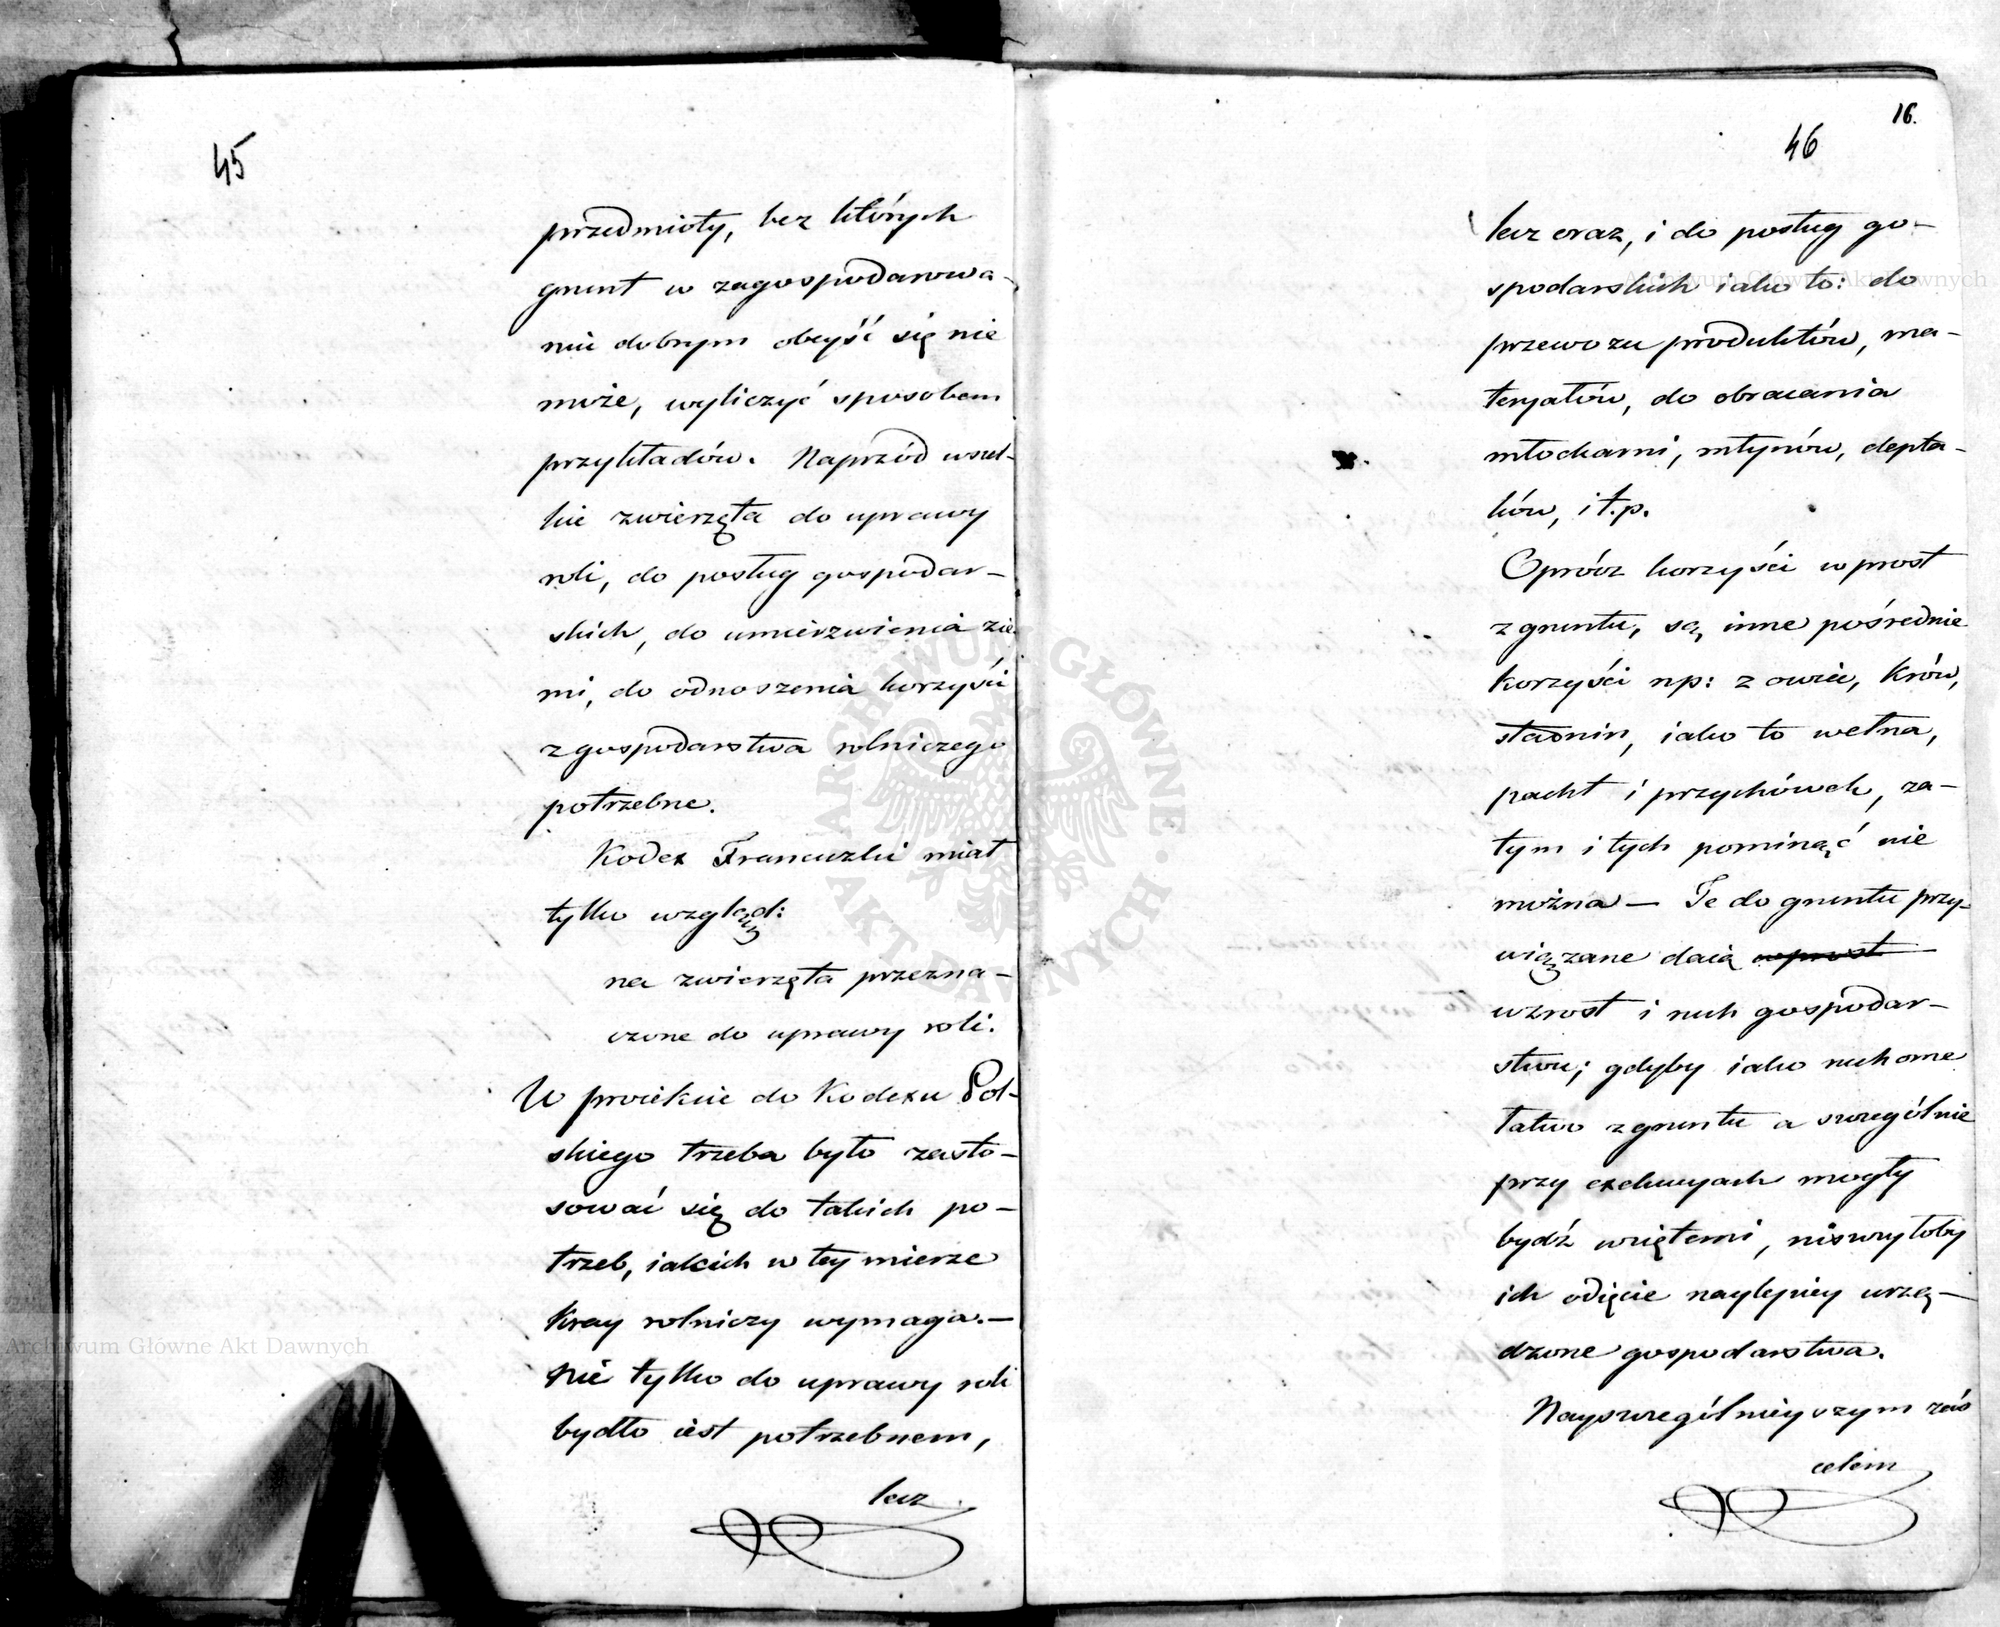 45
przedmioty, bez których
grunt w zagospodarowa-
niu dobrym obeyść się nie
może, wyliczyć sposobem
przykładów. Naprzód wszel-
kie zwierzęta do uprawy
roli, do posług gospodar-
skich, do umierzwienia zie-
mi, do odnoszenia korzyści
z gospodarstwa rolniczego
potrzebne.
Kodex Francuzki miał
tylko wzgląd:
na zwierzęta przezna-
czone do uprawy roli.
W proiekcie do Kodexu Pol-
skiego trzeba było zasto-
sować się do takich po-
trzeb, iakich w tey mierze
Kray rolniczy wymaga.—
Nie tylko do uprawy roli
bydło iest potrzebnem,
lecz
16.
46
lecz oraz, i do posług go-
spodarskich iako to: do
przewozu produktów, ma-
teryałów, do obracania
młockarni, młynów, depta-
ków, i t.p.
Oprócz korzyści wprost
z gruntu, są inne pośrednie
korzyści np: z owiec, krów,
stadnin, iako to wełna,
pacht i przychówek, za-
tym i tych pominąć nie
można — Te do gruntu przy-
wiązane daią wprost
wzrost i ruch gospodar-
stwu; gdyby iako ruchome
łatwo z gruntu a szczególnie
przy exekucyach mogły
bydź wziętemi, niszczyłoby
ich odięcie naylepiey urzą-
dzone gospodarstwa.
Nayszczególnieyszym zaś
celem
Archiwum Główne Akt Dawnych
Archiwum Główne Akt Dawnych
ARCHIWUM GŁÓWNE · AKT DAWNYCH ·